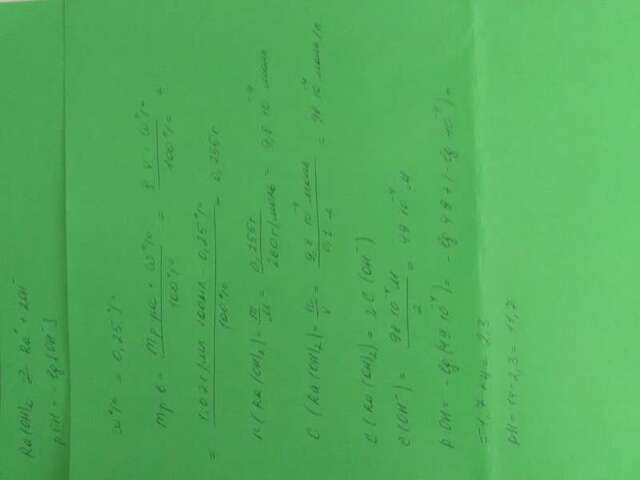 Ra(OH)₂ ⇄ Ra⁺ + 2OH⁻
pOH = -lg[OH⁻]
ω% = 0,25%
mр.в = mр.ра · ω% / 100% = ρ · V · ω% / 100% =
= 1,02 г/мл · 100мл · 0,25% / 100% = 0,255г
n(Ra(OH)₂) = m / M = 0,255г / 260г/моль = 9,8·10⁻⁴ моль
C(Ra(OH)₂) = n / V = 9,8·10⁻⁴ моль / 0,1 л = 98·10⁻⁴ моль/л
C(Ra(OH)₂) = 2C(OH⁻)
C(OH⁻) = 98·10⁻⁴ М / 2 = 49·10⁻⁴ М
pOH = -lg(49·10⁻⁴) = -lg 49 + (-lg 10⁻⁴) =
= -1,7 + 4 = 2,3
pH = 14 - 2,3 = 11,7